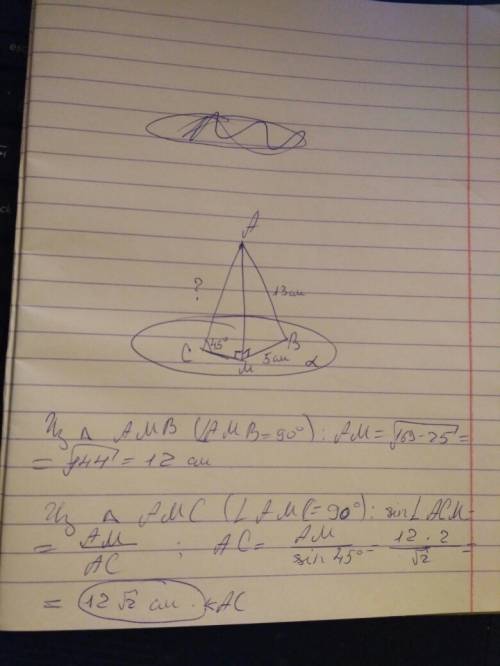 A
?
13 см
C 45° B
M 5 см α
Из △ AMB (∠AMB=90°): AM= √169-25 =
= √144 = 12 см
Из △ AMC (∠AMC=90°): sin∠ACM=
= AM/AC ; AC= AM/sin 45° = 12·2/√2 =
= 12√2 см. AC